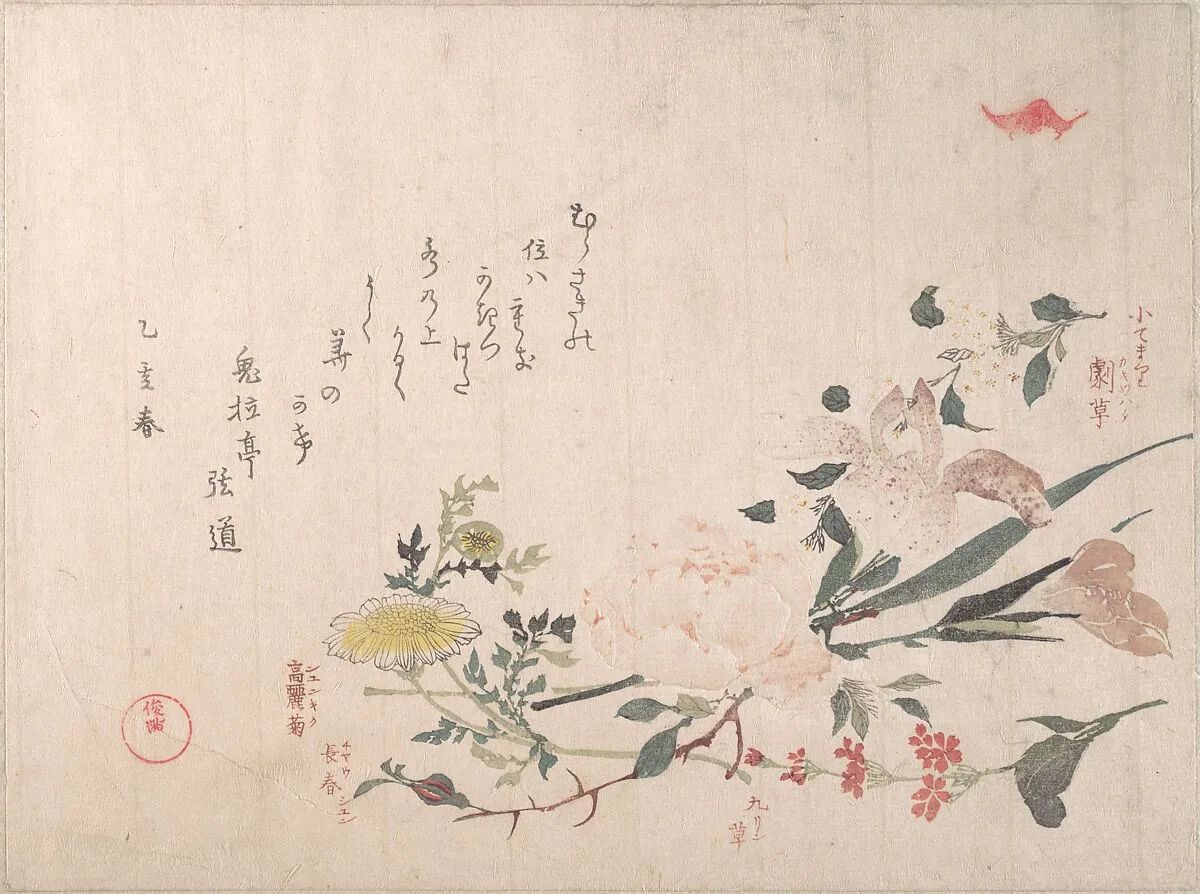 小てまり
劇草
カキツハタ
むらさきの
位ハ
重き
かきつ
はた
水の上
の
鬼拉亭
弦道
乙亥春
高麗菊
シユンキク
長春
チヤウシユン
九リン草
俊満